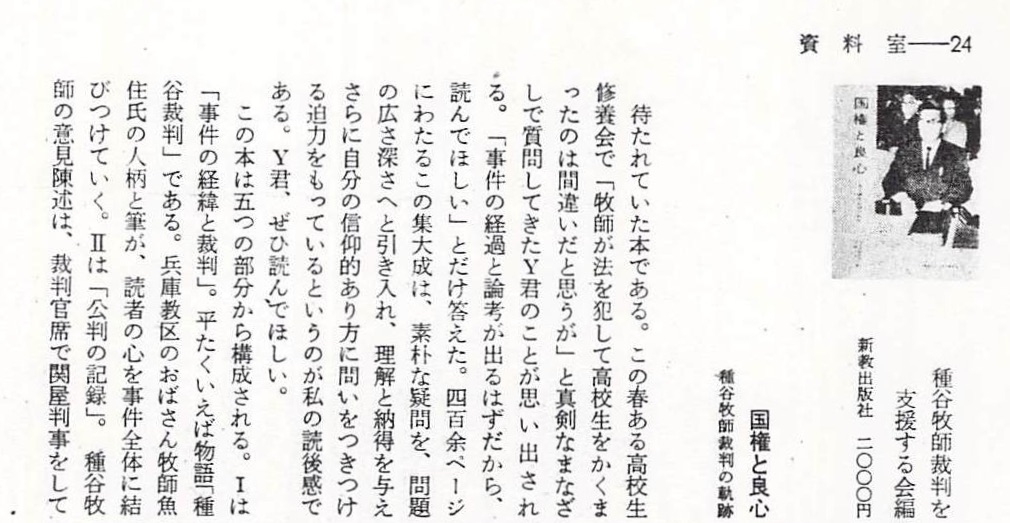 資料室——24
国権と良心
種谷牧師裁判を
支援する会編
新教出版社　二〇〇〇円
国権と良心
種谷牧師裁判の軌跡
待たれていた本である。この春ある高校生
修養会で「牧師が法を犯して高校生をかくま
ったのは間違いだと思うが」と真剣なまなざ
しで質問してきたY君のことが思い出され
る。「事件の経過と論考が出るはずだから、
読んでほしい」とだけ答えた。四百余ページ
にわたるこの集大成は、素朴な疑問を、問題
の広さ深さへと引き入れ、理解と納得を与え
さらに自分の信仰的あり方に問いをつきつけ
る迫力をもっているというのが私の読後感で
ある。Y君、ぜひ読んでほしい。
この本は五つの部分から構成される。Ⅰは
「事件の経緯と裁判」。平たくいえば物語「種
谷裁判」である。兵庫教区のおばさん牧師魚
住氏の人柄と筆が、読者の心を事件全体に結
びつけていく。Ⅱは「公判の記録」。種谷牧
師の意見陳述は、裁判官席で関屋判事をして